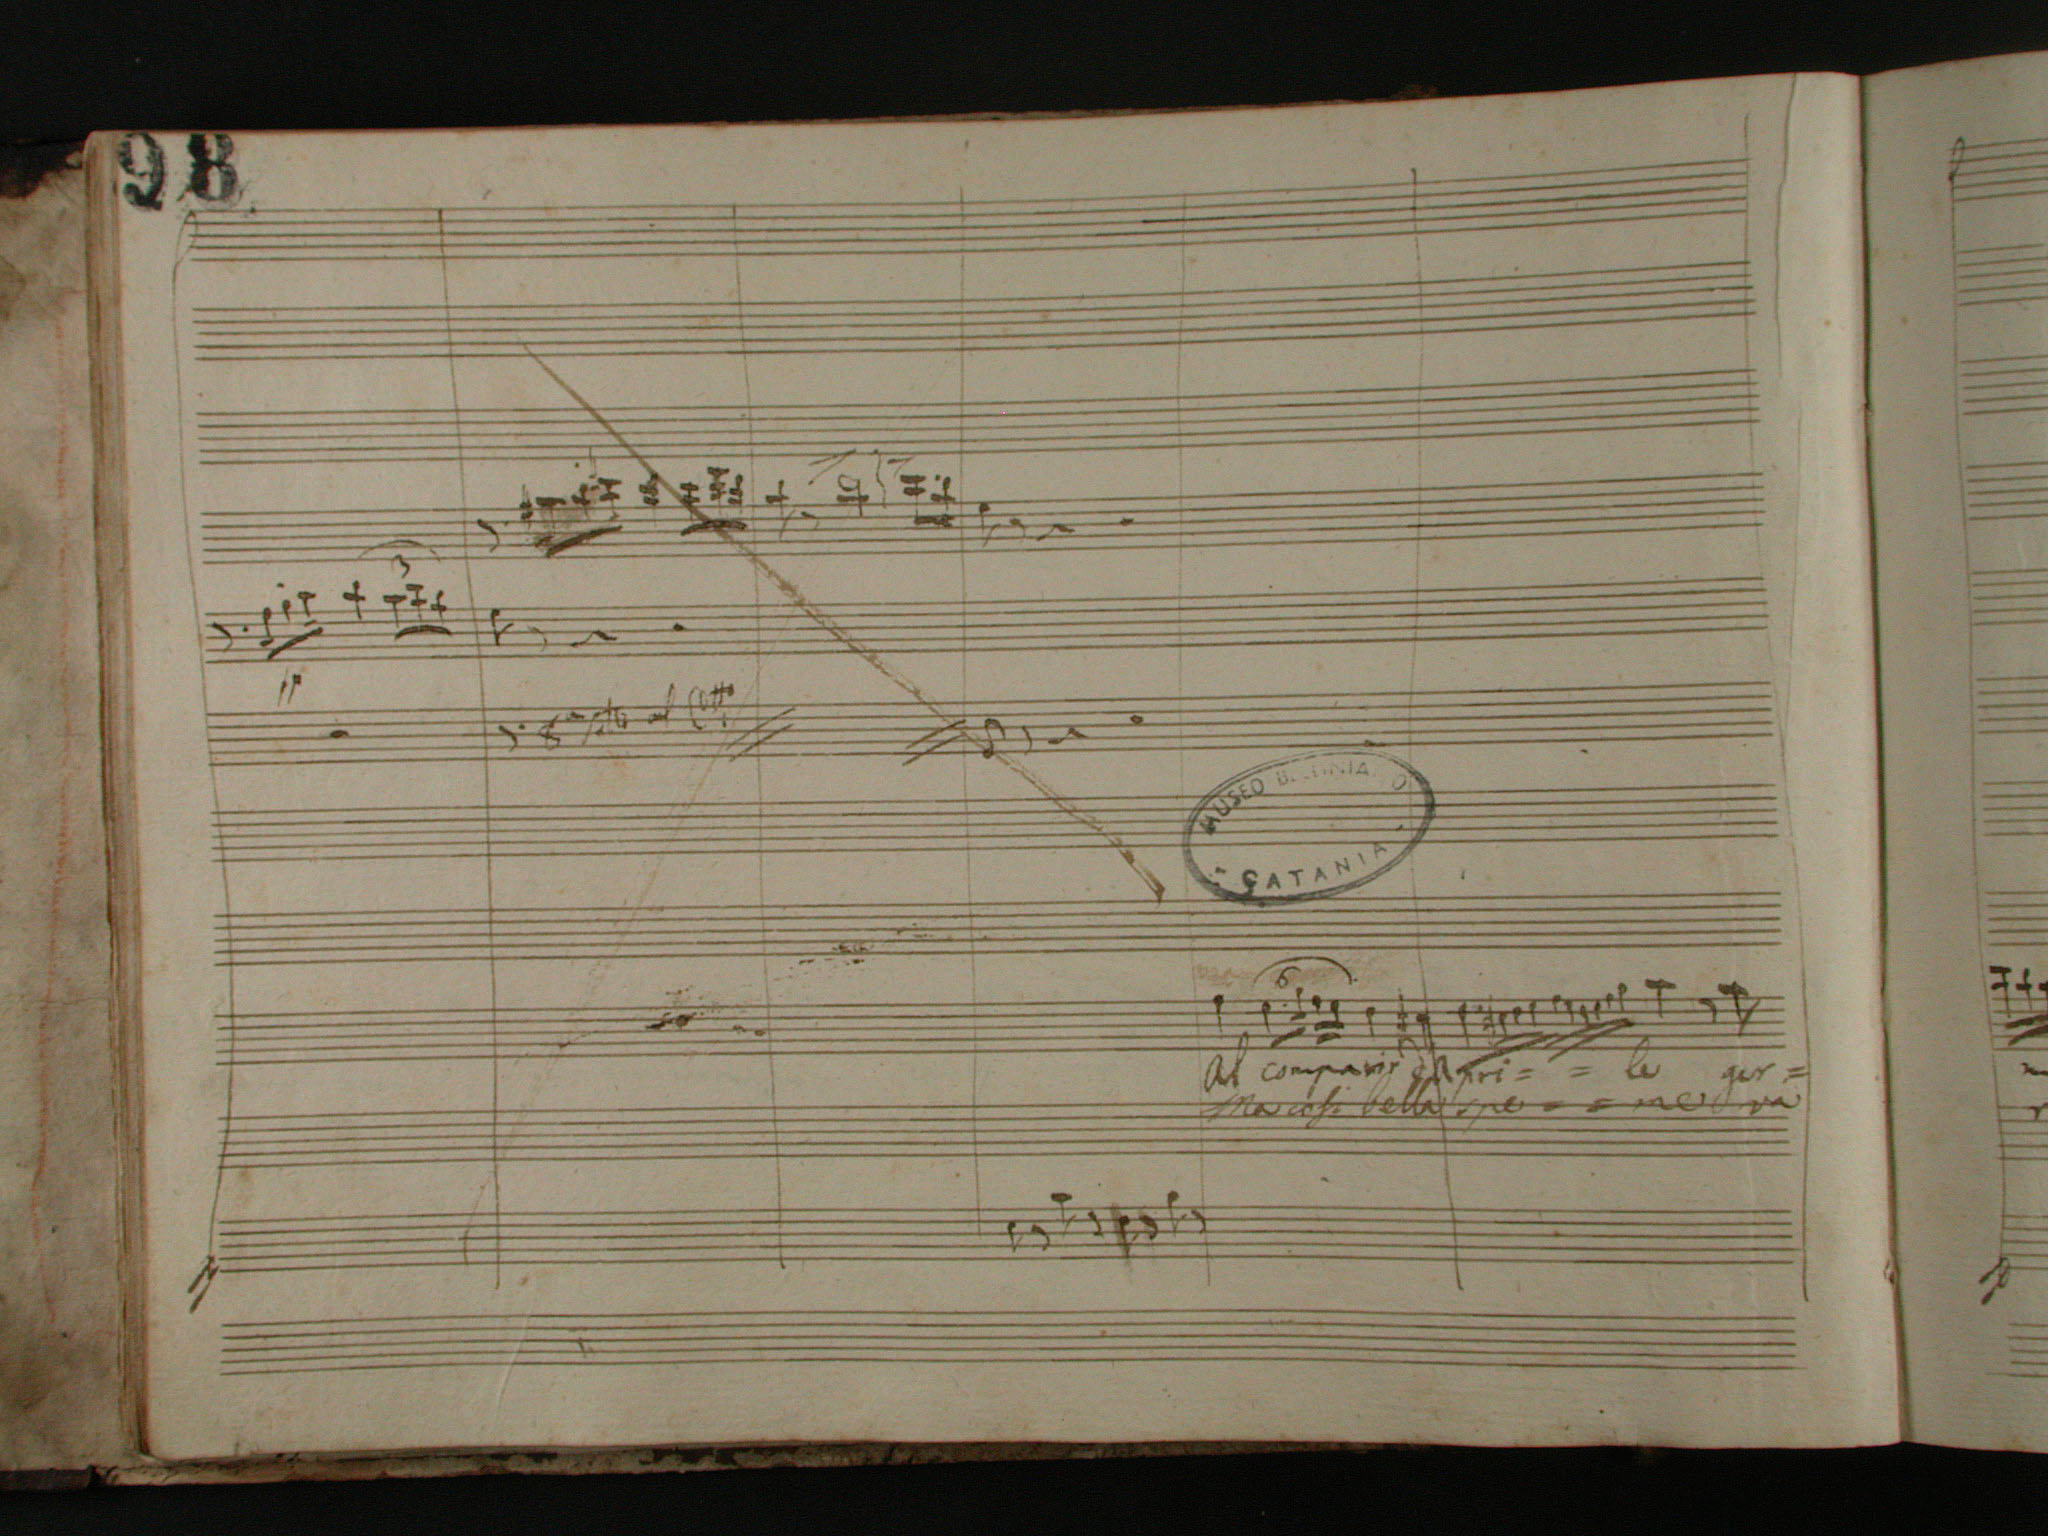 98
3
8va sotto al
MUSEO BELLINIANO
CATANIA
6
Al comparir d'Apri = = le ger =
Ma così bella spe = = me